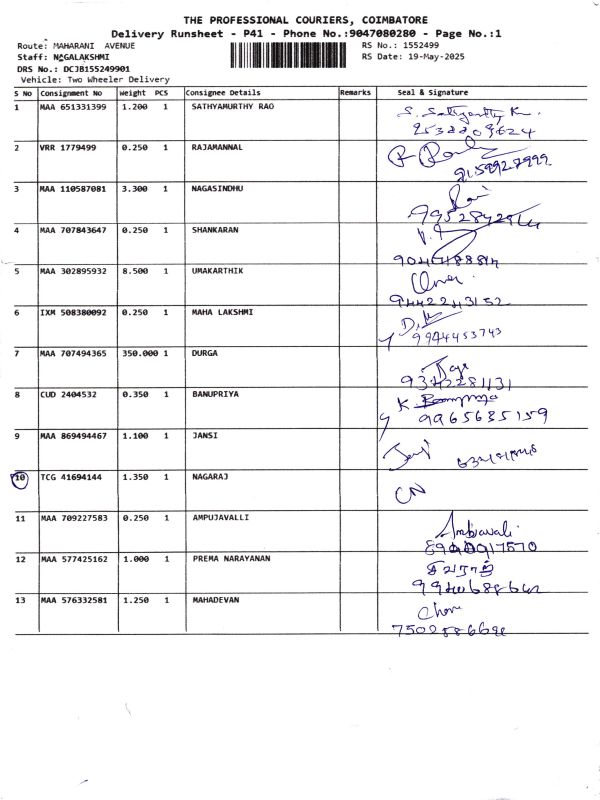 THE PROFESSIONAL COURIERS, COIMBATORE
Delivery Runsheet - P41 - Phone No.:9047080280 - Page No.:1
Route: MAHARANI AVENUE RS No.: 1552499
Staff: NAGALAKSHMI RS Date: 19-May-2025
DRS No.: DCJB155249901
Vehicle: Two Wheeler Delivery
S No Consignment No Weight PCS Consignee Details Remarks Seal & Signature
1 MAA 651331399 1.200 1 SATHYAMURTHY RAO
2 VRR 1779499 0.250 1 RAJAMANNAL
3 MAA 110587081 3.300 1 NAGASINDHU
4 MAA 707843647 0.250 1 SHANKARAN
5 MAA 302895932 8.500 1 UMAKARTHIK
9442243152
6 IXM 508380092 0.250 1 MAHA LAKSHMI
9944453743
7 MAA 707494365 350.000 1 DURGA
9342281131
8 CUD 2404532 0.350 1 BANUPRIYA
9965635159
9 MAA 869494467 1.100 1 JANSI
10 TCG 41694144 1.350 1 NAGARAJ
CN
11 MAA 709227583 0.250 1 AMPUJAVALLI
12 MAA 577425162 1.000 1 PREMA NARAYANAN
13 MAA 576332581 1.250 1 MAHADEVAN